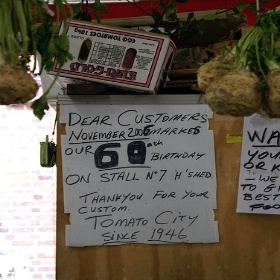 EGG TOMATOES 12kg
EURO-GOLD
DEAR CUSTOMERS
NOVEMBER 2006 MARKES
OUR 60th BIRTHDAY
ON STALL Nº7 H'SHED
THANKYOU FOR YOUR
CUSTOM.
TOMATO CITY
SINCE 1946
WA
YOU
OR K
WE
TO G
BEST